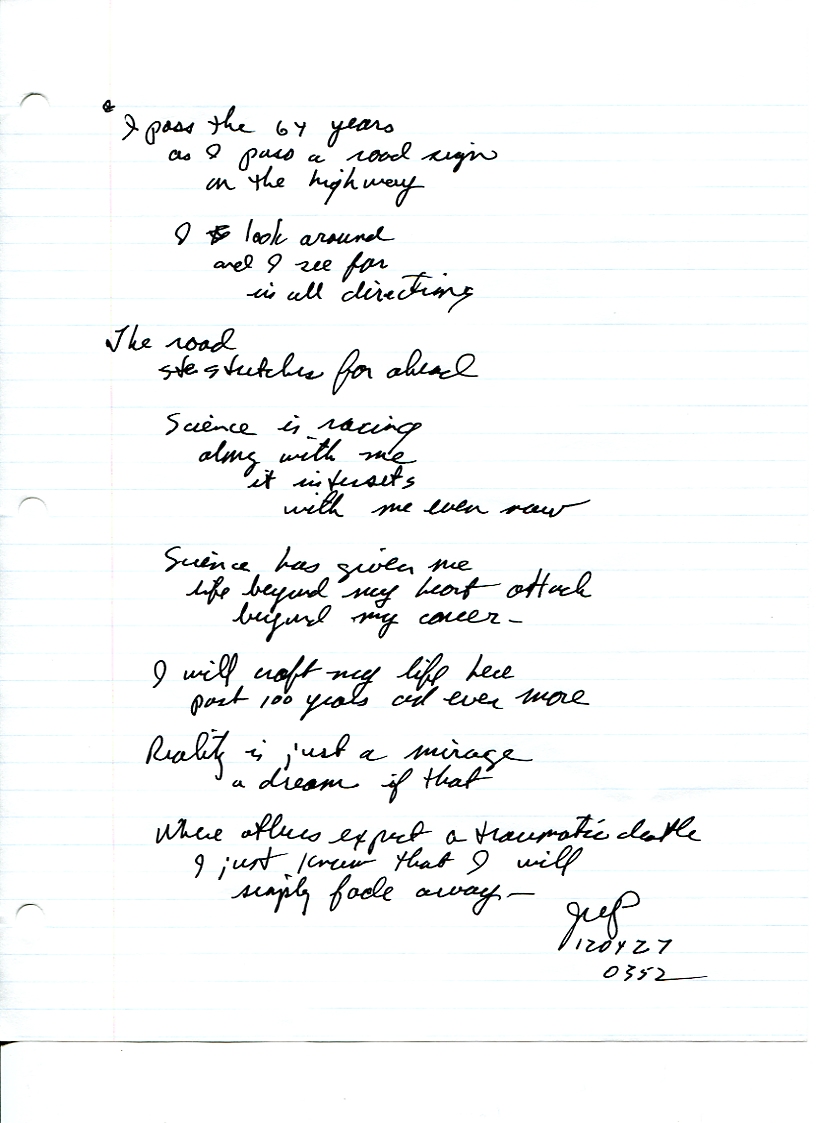 I pass the 64 years
as I pass a road sign
on the highway
I look around
and I see far
in all directions
The road
stretches far ahead
Science is racing
along with me
it intersects
with me even now
Science has given me
life beyond my heart attack
beyond my cancer –
I will craft my life here
past 100 years and even more
Reality is just a mirage
a dream if that
Where others expect a traumatic death
I just know that I will
simply fade away –
120427
0352